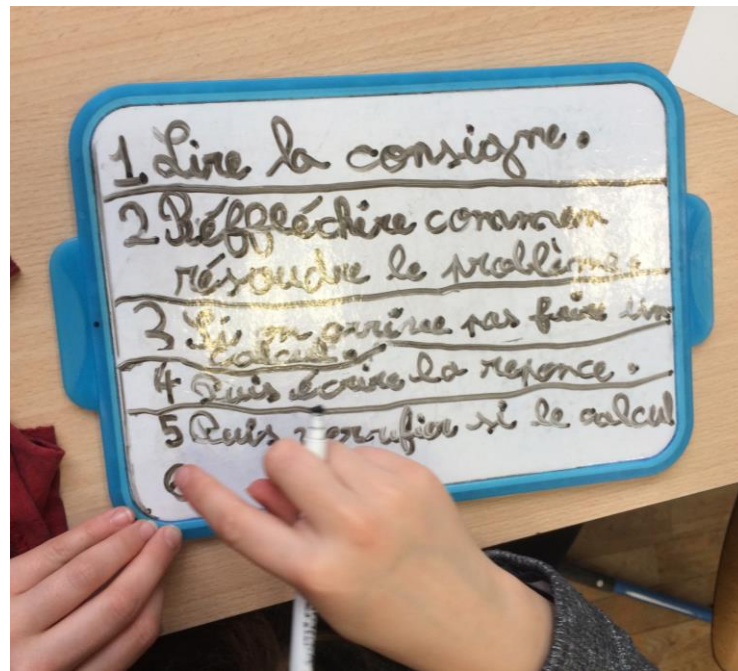 1. Lire la consigne.
2 Réffléchire commen
résoudre le problème.
3 Si on arrive pas faire un
calcule
4 Puis écrire la reponce.
5 Puis verifier si le calcul